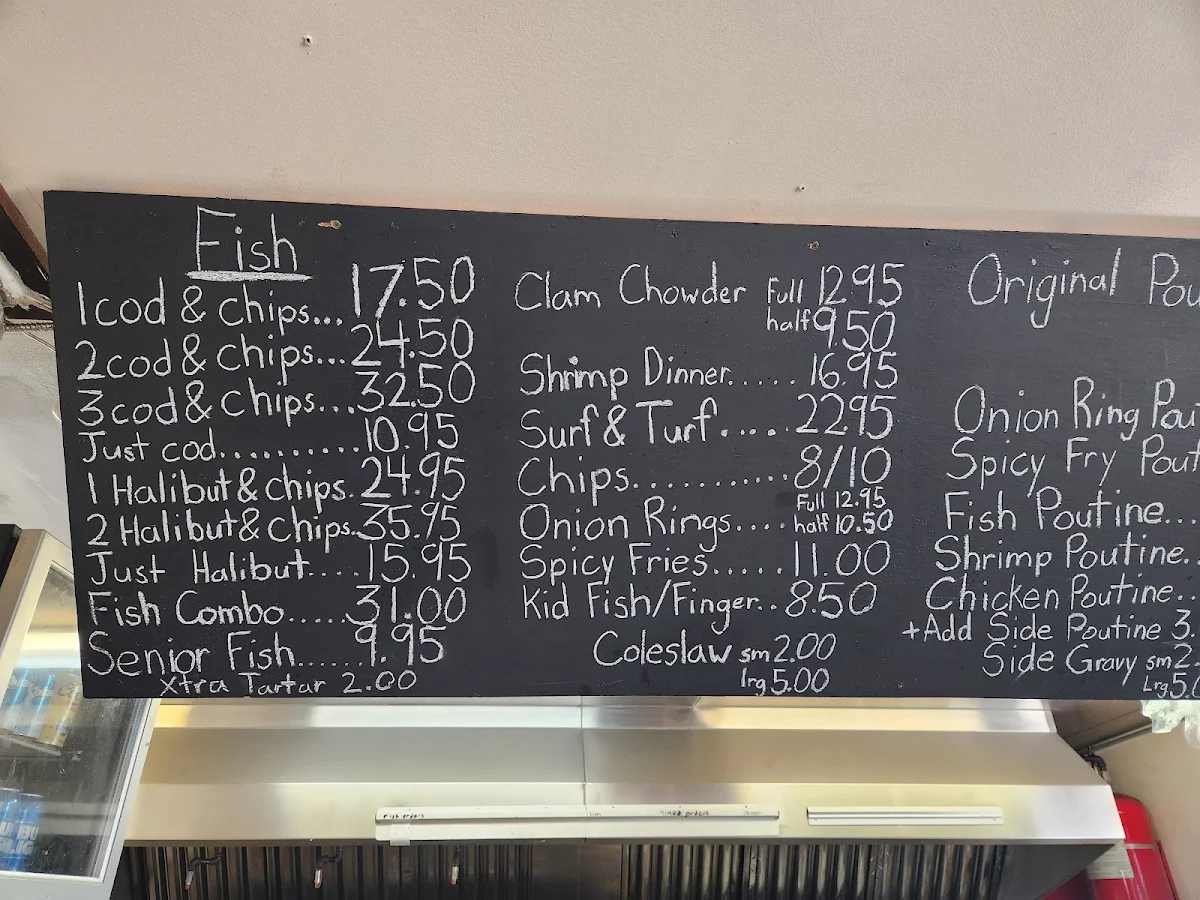 Fish
1 cod & chips...17.50
2 cod & chips...24.50
3 cod & chips...32.50
Just cod..........10.95
1 Halibut & chips.24.95
2 Halibut & chips..35.95
Just Halibut....15.95
Fish Combo.....31.00
Senior Fish......9.95
Xtra Tartar 2.00
Clam Chowder Full 12.95
half 9.50
Shrimp Dinner..... 16.95
Surf & Turf.....22.95
Chips...........8/10
Full 12.95
Onion Rings.... half 10.50
Spicy Fries.....11.00
Kid Fish/Finger..8.50
Coleslaw sm 2.00
lrg 5.00
Original Pou
Onion Ring Pou
Spicy Fry Pout
Fish Poutine...
Shrimp Poutine..
Chicken Poutine..
+Add Side Poutine 3.
Side Gravy sm 2.
Lrg 5.0
Fish orders